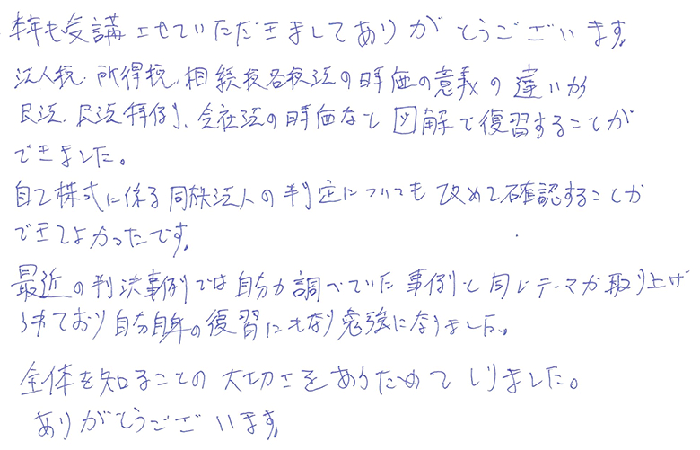 本年も受講させていただきましてありがとうございます。
法人税、所得税、相続税各税法の時価の意義の違いが
民法、民法特例、会社法の時価など図解で復習することが
できました。
自己株式に係る同族法人の判定についても改めて確認することが
できてよかったです。
最近の判決事例では自分が調べていた事例と同じテーマが取り上げ
られており自分自身の復習にもなり勉強になりました。
全体を知ることの大切さをあらためてしりました。
ありがとうございます。